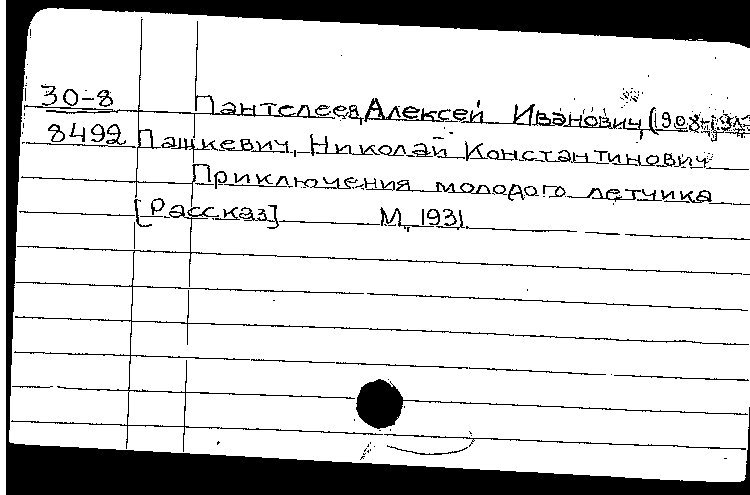 30-8 Пантелеев, Алексей Иванович, (1908-
8492 Пашкевич, Николай Константинович
Приключения молодого летчика
[Рассказ] М, 1931.